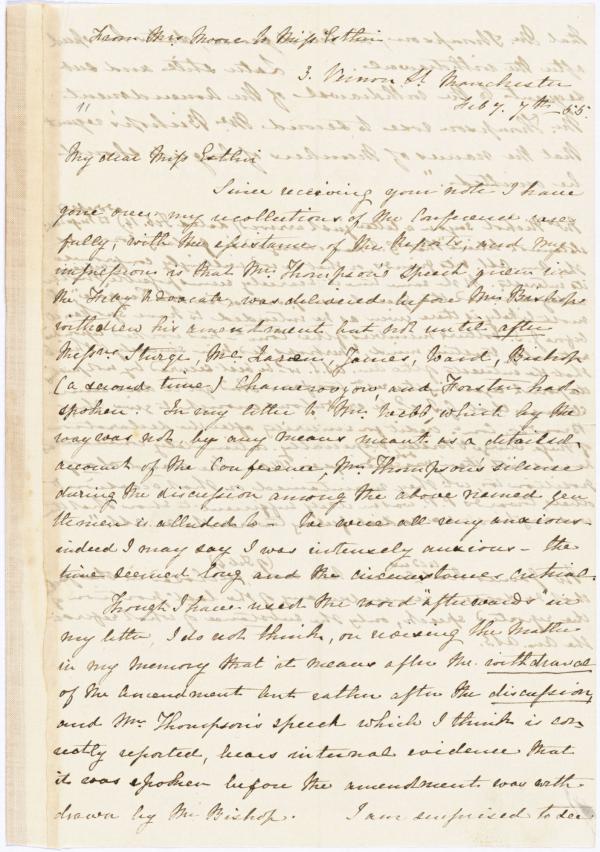 From Mrs Moore to Miss Estlin
3. Vernon St. Manchester
Feby. 7th 55.
My dear Miss Estlin
Since receiving your note I have
gone over my recollections of the Conference care-
fully, with the assistance of the Reports, and my
impression is that Mr. Thompson's speech given in
the Advocate, was delivered before Mr. Bishop
withdrew his amendment but not until after
Messrs Sturge, Mc. Laren, James, Ward, Bishop
(a second time) Chamerovzow, and Forster had
spoken. In my letter to Mr. Webb, which by the
way was not, by any means meant as a detailed
account of the Conference, Mr. Thompson's silence
during the discussion among the above named gen
tlemen is alluded to - We were all very anxious -
indeed I may say I was intensely anxious - the
time seemed long and the circumstances critical.
Though I have used the word "afterwards" in
my letter, I do not think, on revising the matter
in my memory that it means after the withdrawal
of the amendment but rather after the discussion,
and Mr. Thompson's speech which I think is cor-
rectly reported, bears internal evidence that
it was spoken before the amendment was with-
drawn by Mr. Bishop. I am surprised to see